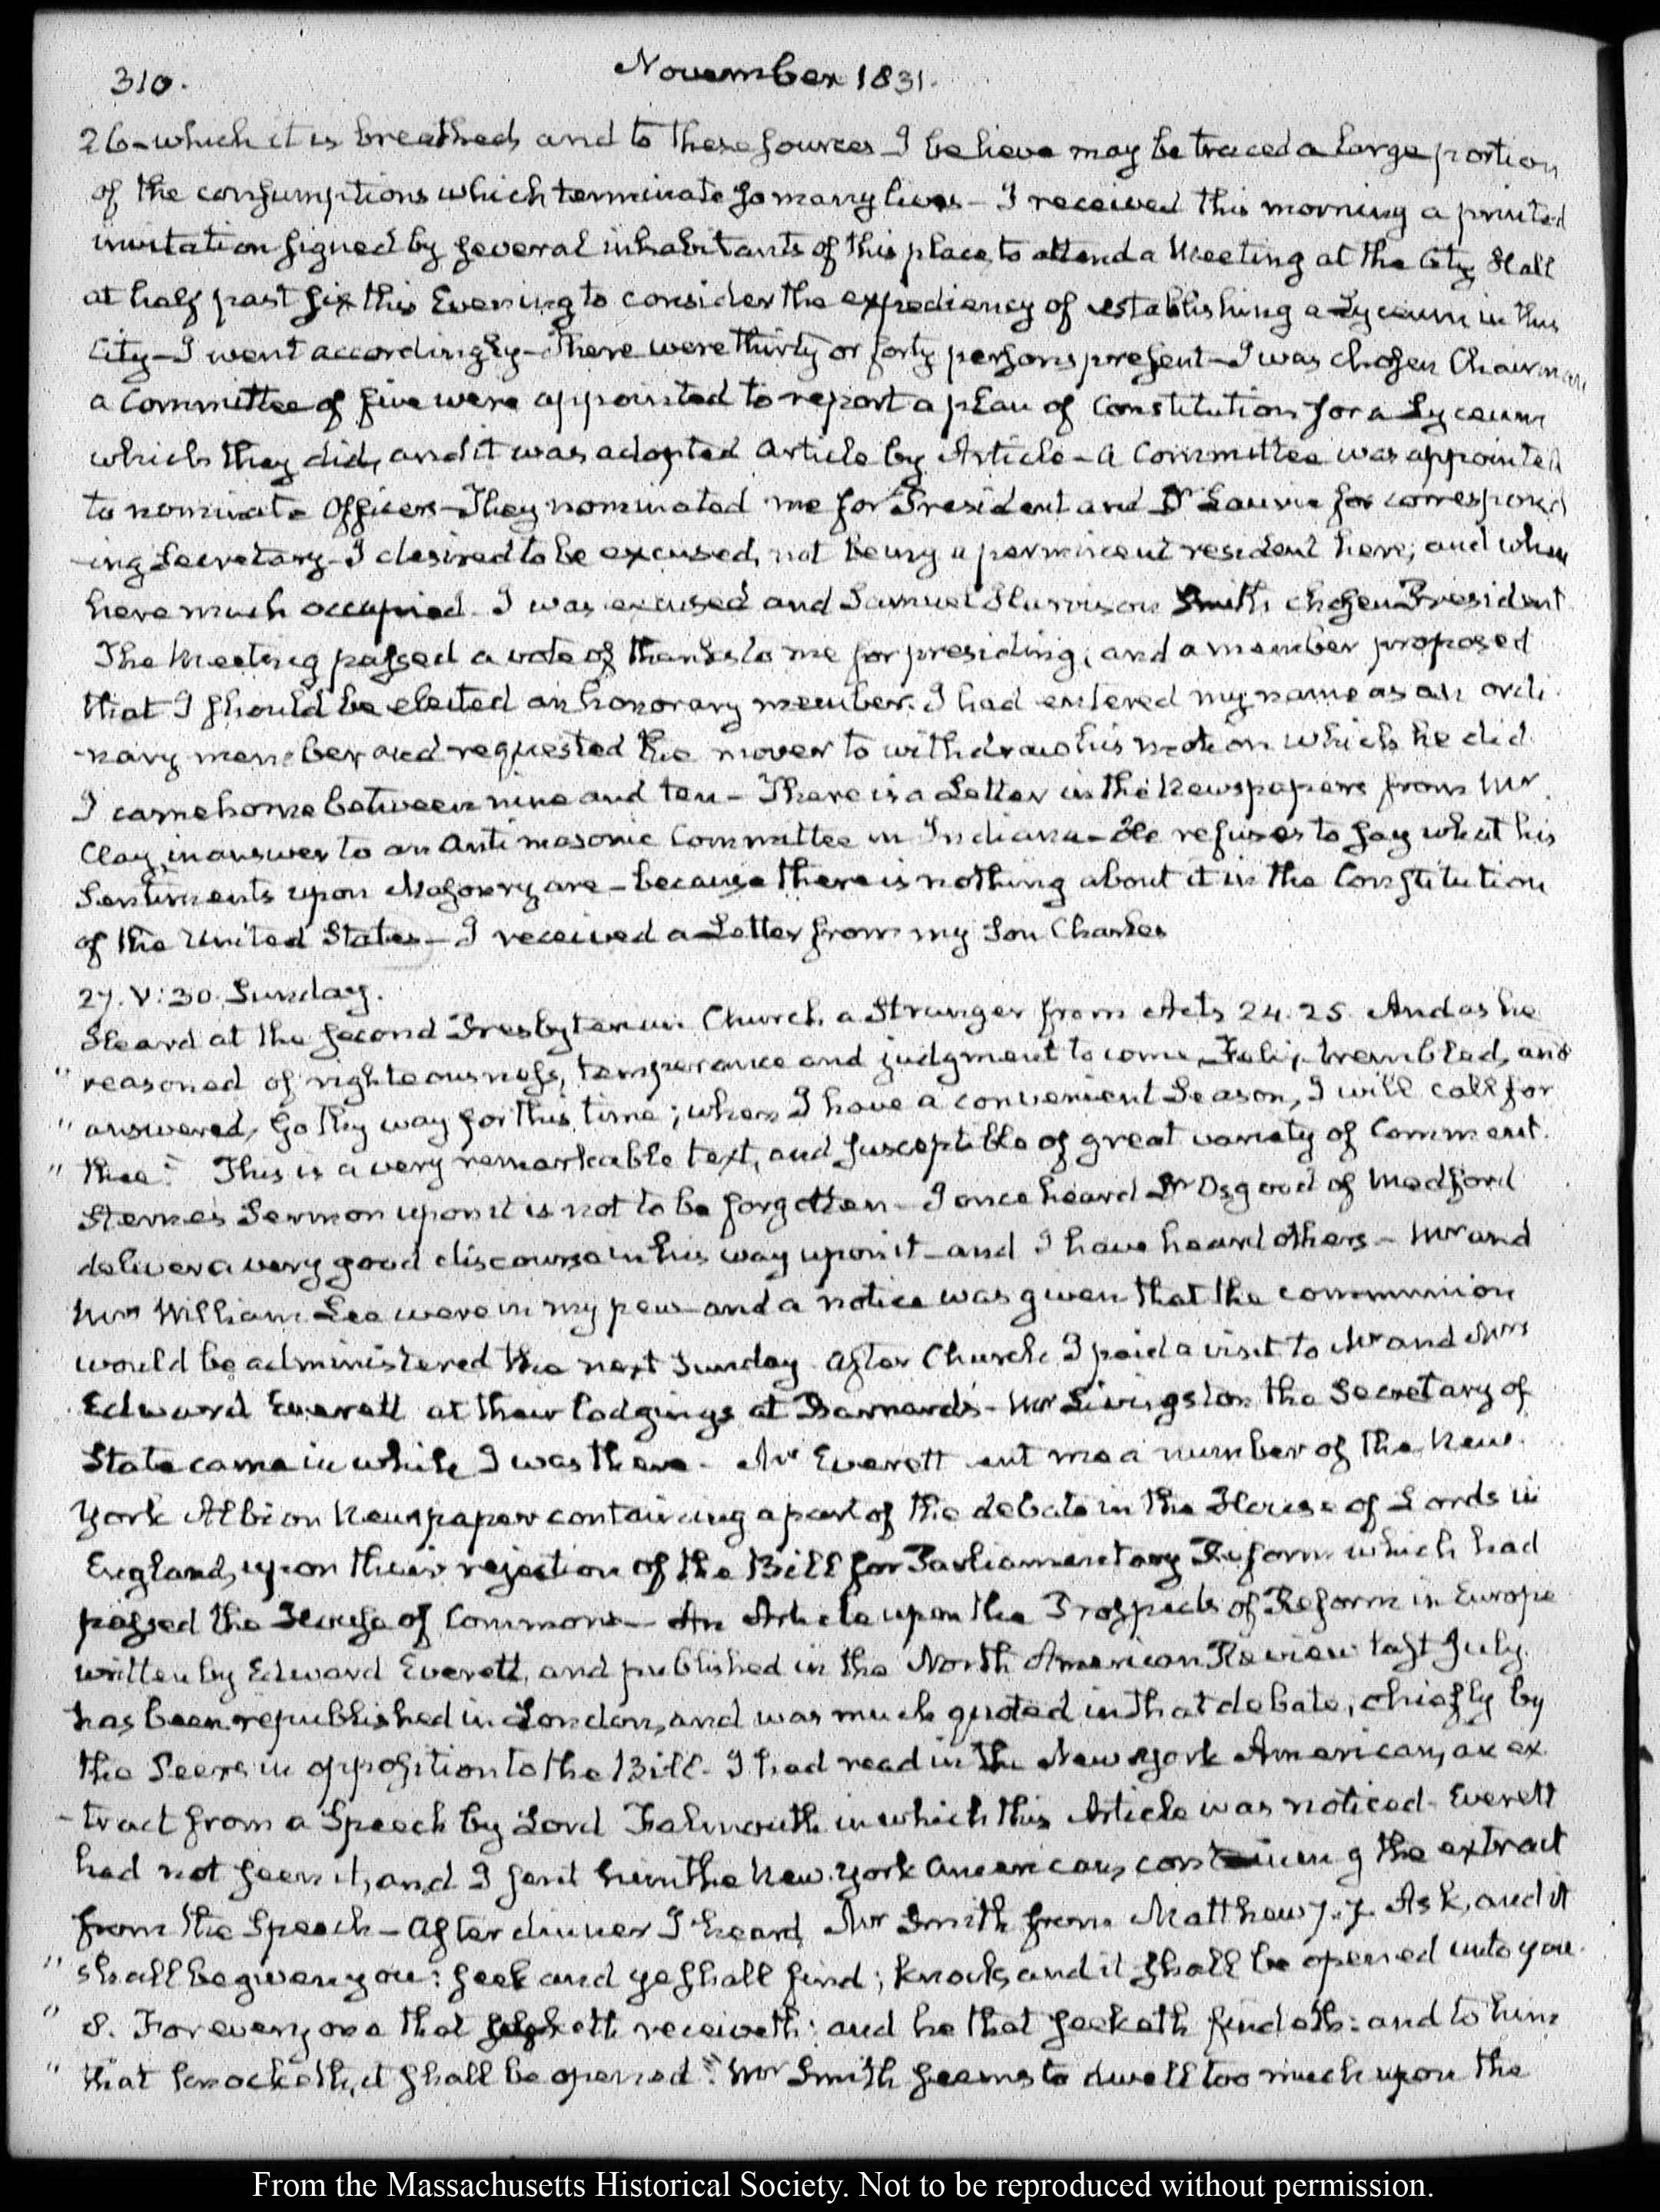 310.
November 1831.
26 - which it is breathed, and to these sources I believe may be traced a large portion
of the consumptions which terminate so many lives - I received this morning a printed
invitation signed by several inhabitants of this place, to attend a Meeting at the City Hall
at half past six this Evening to consider the expediency of establishing a Lyceum in this
City - I went accordingly - There were thirty or forty persons present - I was chosen Chairman
a Committee of five were appointed to report a plan of Constitution for a Lyceum
which they did, and it was adopted Article by Article - A Committee was appointed
to nominate Officers - They nominated me for President and Dr Laurie for correspond
-ing Secretary - I desired to be excused, not being a permanent resident here; and when
here much occupied. I was excused and Samuel Harrison Smith chosen President
The Meeting passed a vote of thanks to me for presiding; and a member proposed
that I should be elected an honorary member. I had entered my name as an ordi
-nary member and requested the mover to withdraw his motion which he did.
I came home between nine and ten - There is a Letter in the Newspapers from Mr
Clay, in answer to an Antimasonic Committee in Indiana - He refuses to say what his
Sentiments upon Masonry are - because there is nothing about it in the Constitution
of the United States - I received a Letter from my Son Charles
27. V:30. Sunday.
Heard at the second Presbyterian Church a Stranger from Acts 24. 25. And as he
" reasoned of righteousness, temperance and judgment to come, Felix trembled, and
" answered, Go thy way for this time; when I have a convenient Season, I will call for
" thee." This is a very remarkable text, and susceptible of great variety of Comment.
Sterne's Sermon upon it is not to be forgotten - I once heard Dr Osgood of Medford
deliver a very good discourse in his way upon it - and I have heard others - Mr and
Mrs William Lee were in my pew - and a notice was given that the communion
would be administered the next Sunday. After Church I paid a visit to Mr and Mrs
Edward Everett at their lodgings at Barnard's - Mr Livingston the Secretary of
State came in while I was there. Mr Everett ent me a number of the New.
York Albion Newspaper containing a part of the debate in the House of Lords in
England, upon their rejection of the Bill for Parliamentary Reform which had
passed the House of Commons - An Article upon the Prospects of Reform in Europe
written by Edward Everett, and published in the North American Review last July.
has been republished in London, and was much quoted in that debate, chiefly by
the Peers in opposition to the Bill - I had read in the New York American, an ex
-tract from a Speech by Lord Falmouth in which this Article was noticed - Everett
had not seen it, and I sent him the New York American, containing the extract
from the Speech - After dinner I heard Mr Smith from Matthew 7. 7. Ask, and it
" shall be given you: seek and ye shall find; knock, and it shall be opened unto you.
" 8. For every one that receiveth: and he that seeketh findeth: and to him
" that knocketh, it shall be opened." Mr Smith seems to dwell too much upon the
From the Massachusetts Historical Society. Not to be reproduced without permission.